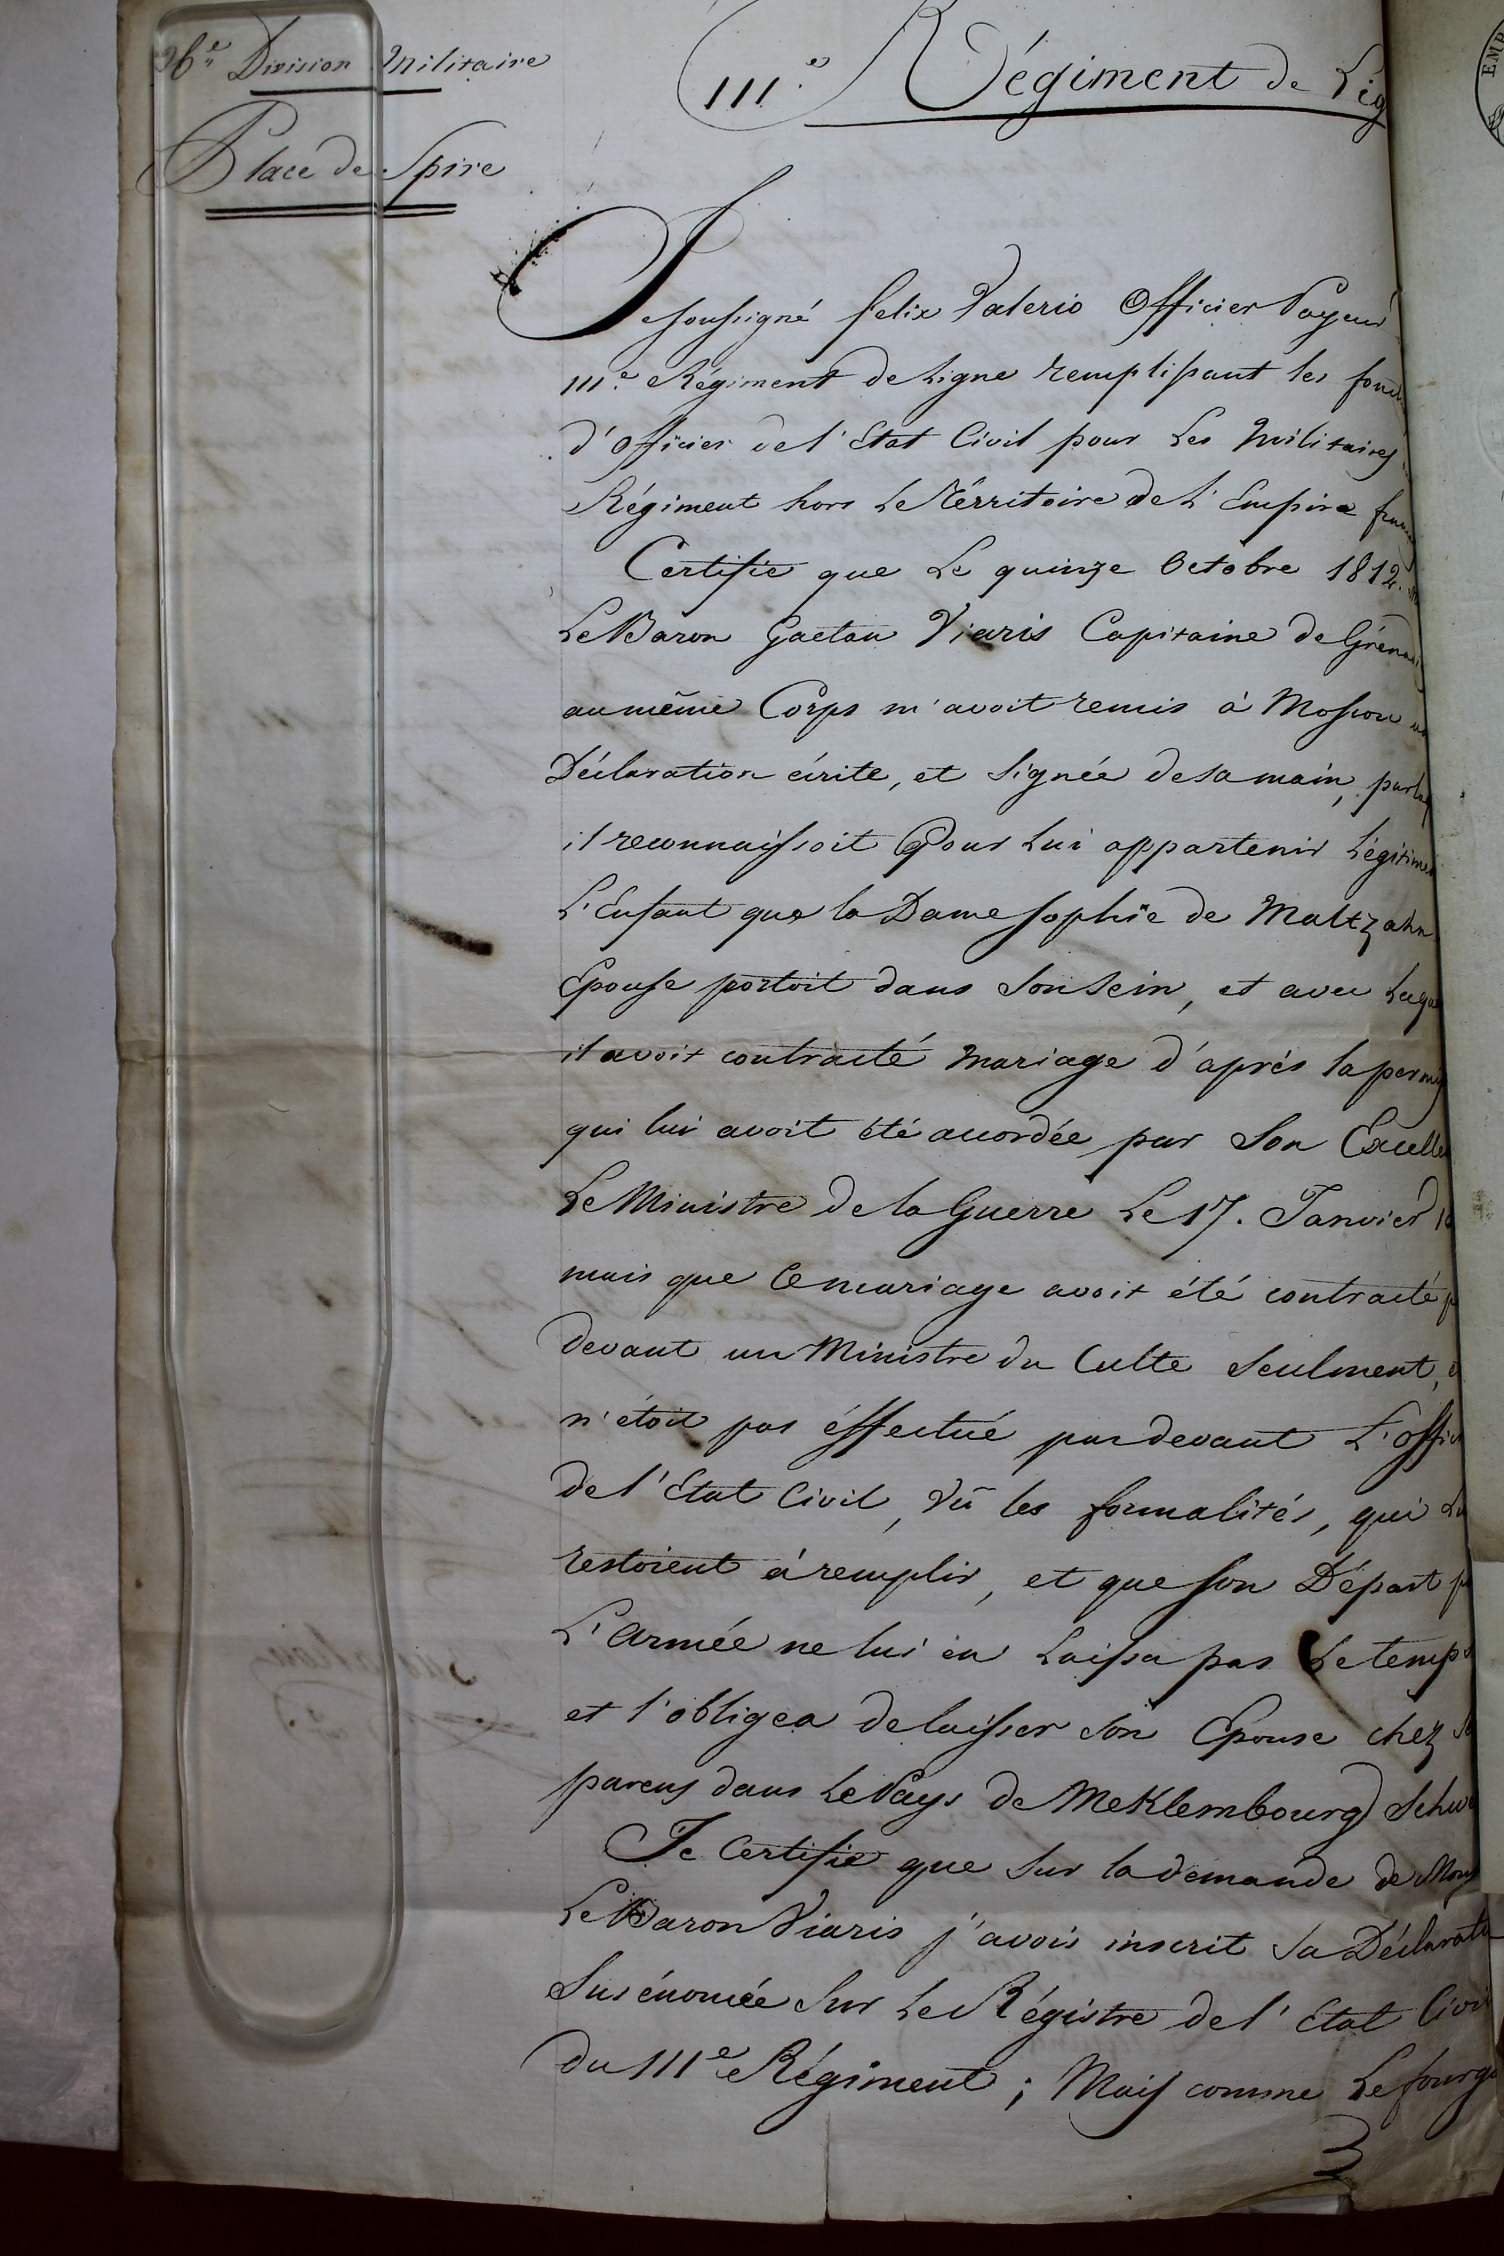 26e Division Militaire
Place de Spire
111e Régiment de Lig
EMP
Je soussigné felix Valerio Officier Payeur
111e Régiment de Ligne remplissant les fonct
d'officier de l'Etat Civil pour Les Militaires
Régiment hors Le Térritoire de L'Empire fran
Certifie que Le quinze Octobre 1812.
Le Baron Gaetan Viaris Capitaine de Grénad
au même Corps m'avoit remis à Moscou
Déclaration écrite, et signée de sa main, par laq
il reconnaissoit Pour Lui appartenir Légitime
L'Enfant que la Dame sophie de Maltzahn
Epouse portoit dans Son Sein, et avec Laqu
il avoit contracté mariage d'après la permis
qui lui avoit été accordée par Son Excelle
Le Ministre de la Guerre Le 17. Janvier 18
mais que Ce mariage avoit été contracté p
devant un Ministre du Culte Seulment, e
n'étoit pas éffectué pardevant L'offici
de l'Etat Civil, Vû les formalités, qui Lu
restoient à remplir, et que son Départ p
L'Armée ne lui en Laissa pas Le temps
et l'obligea de laisser son Epouse chez s
parens dans Le Pays de Meklembourg Schw
Je Certifie que Sur la demande de Mons
Le Baron Viaris j'avois inscrit sa Déclarati
Susénoncée Sur Le Régistre de l'Etat Civil
du 111e Régiment; Mais comme Le fourgo